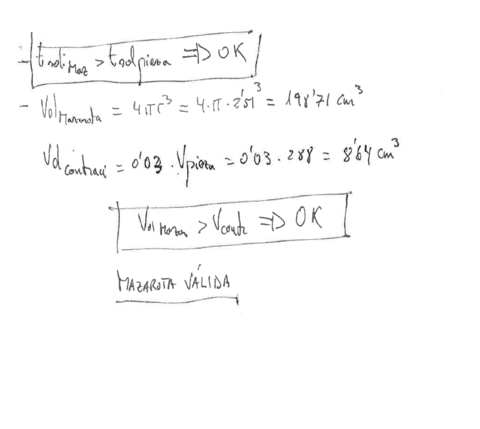 - tsoli Maz > tsol pieza => OK
- Vol Mazarota = 4πr³ = 4·π·2'51³ = 198'71 cm³
Vol contracci = 0'03 · Vpieza = 0'03 · 288 = 8'64 cm³
Vol Mazar > Vcontr => OK
MAZAROTA VÁLIDA